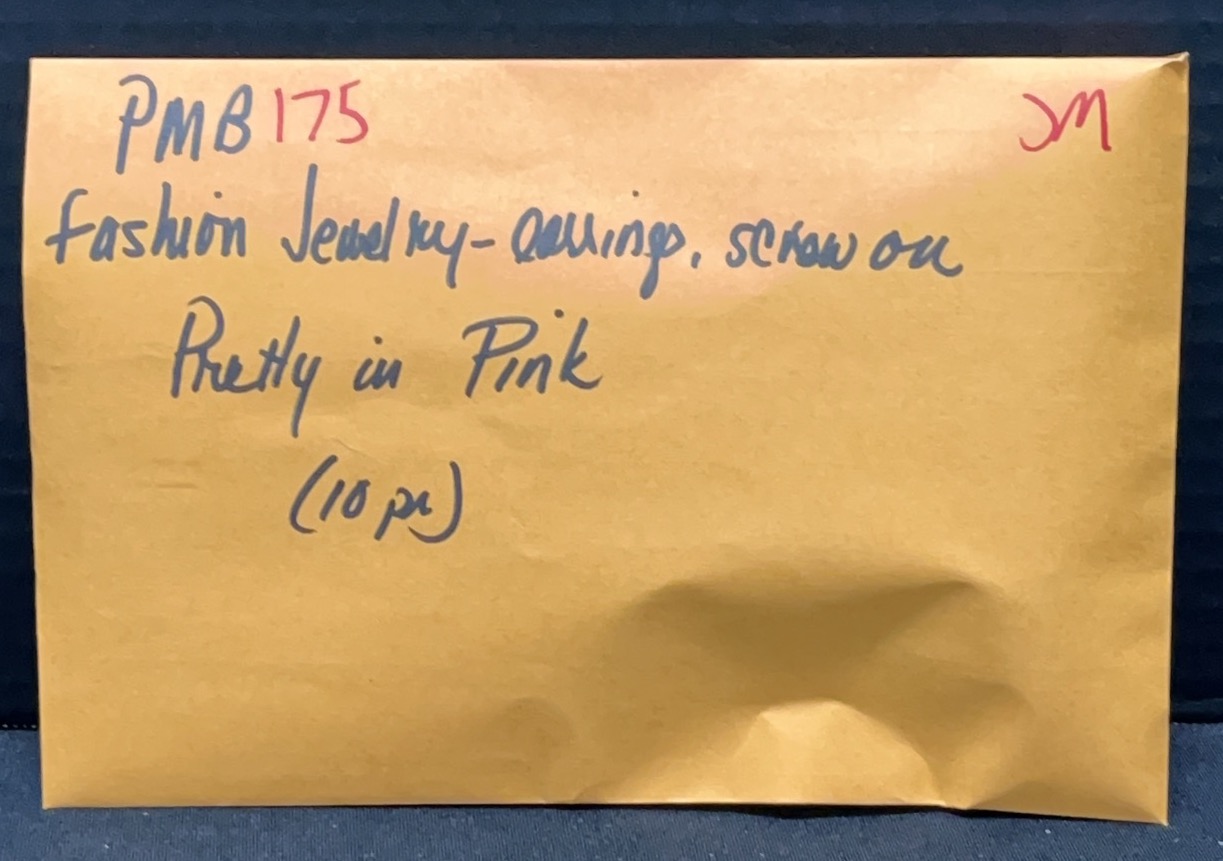 PMB 175 JM
Fashion Jewelry - earrings, screw on
Pretty in Pink
(10 pr)